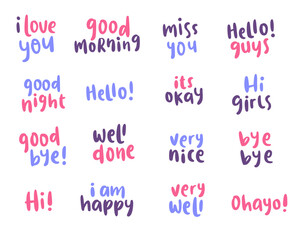 i love
you
good
morning
miss
you
Hello!
guys
good
night
Hello!
its
okay
Hi
girls
good
bye!
well
done
very
nice
bye
bye
Hi!
i am
happy
very
well!
Ohayo!